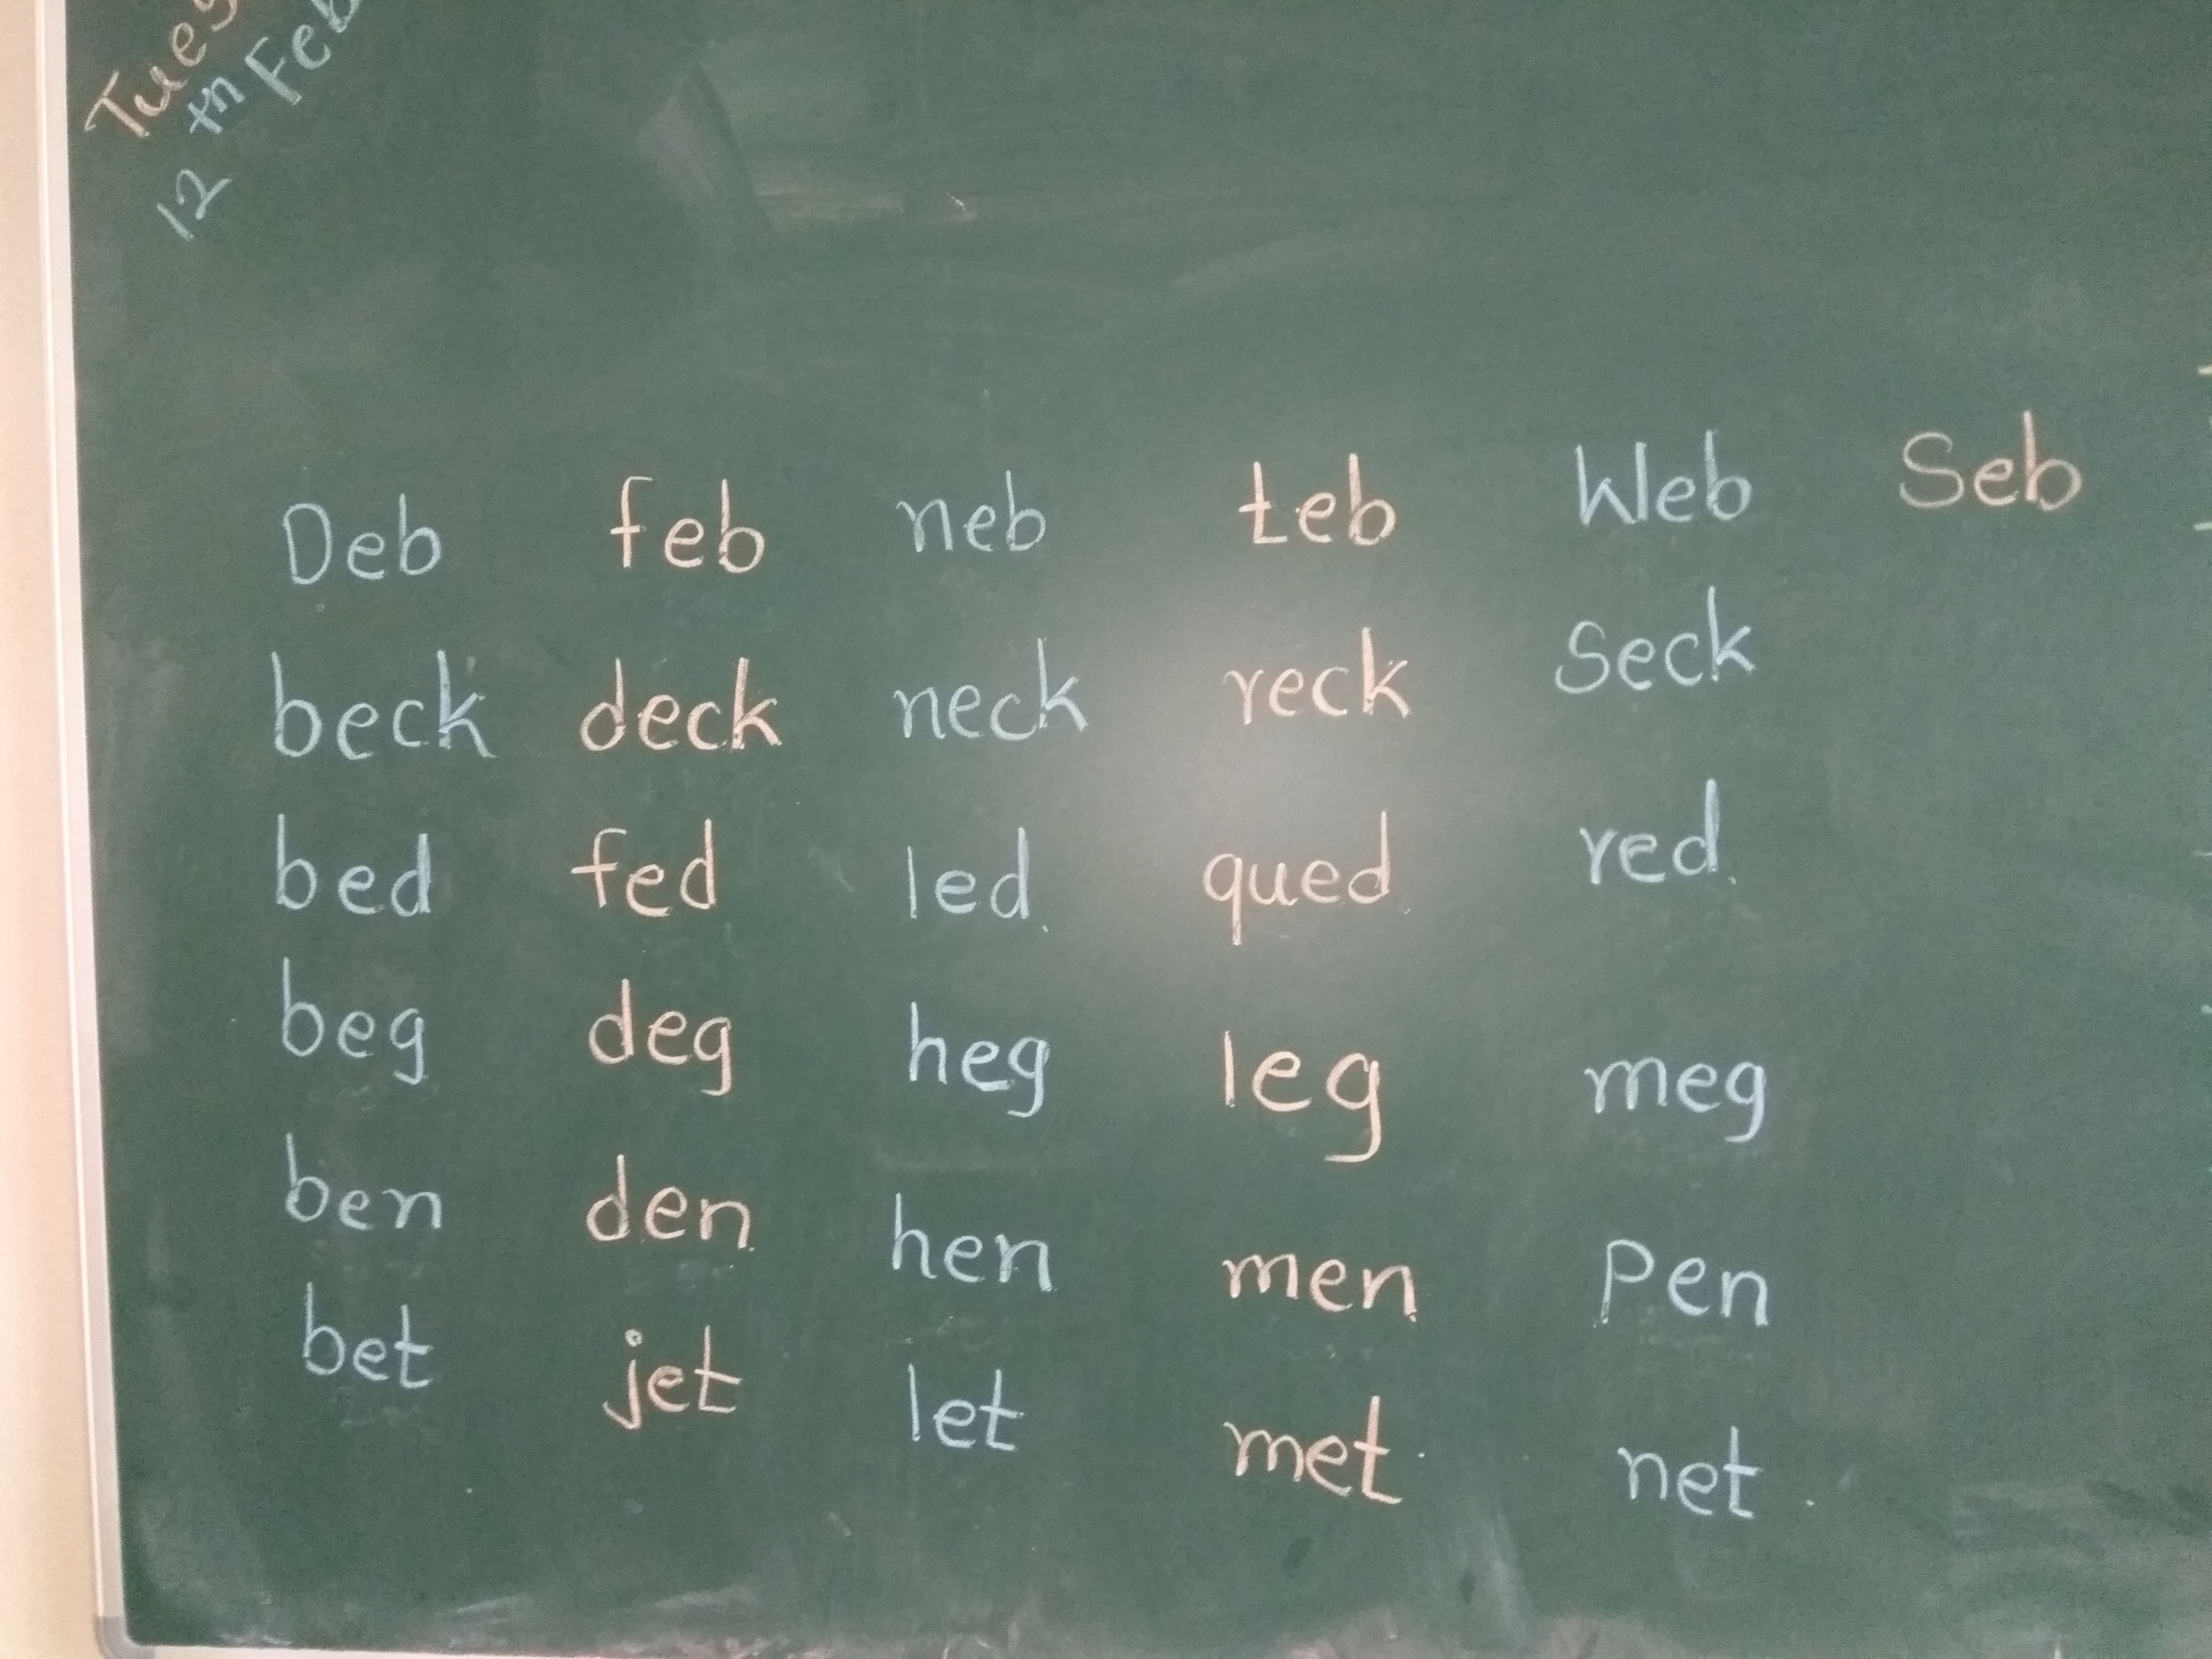 Tues
12th Feb
Deb feb neb teb Web Seb
beck deck neck reck Seck
bed fed led qued red
beg deg heg leg meg
ben den hen men Pen
bet jet let met net